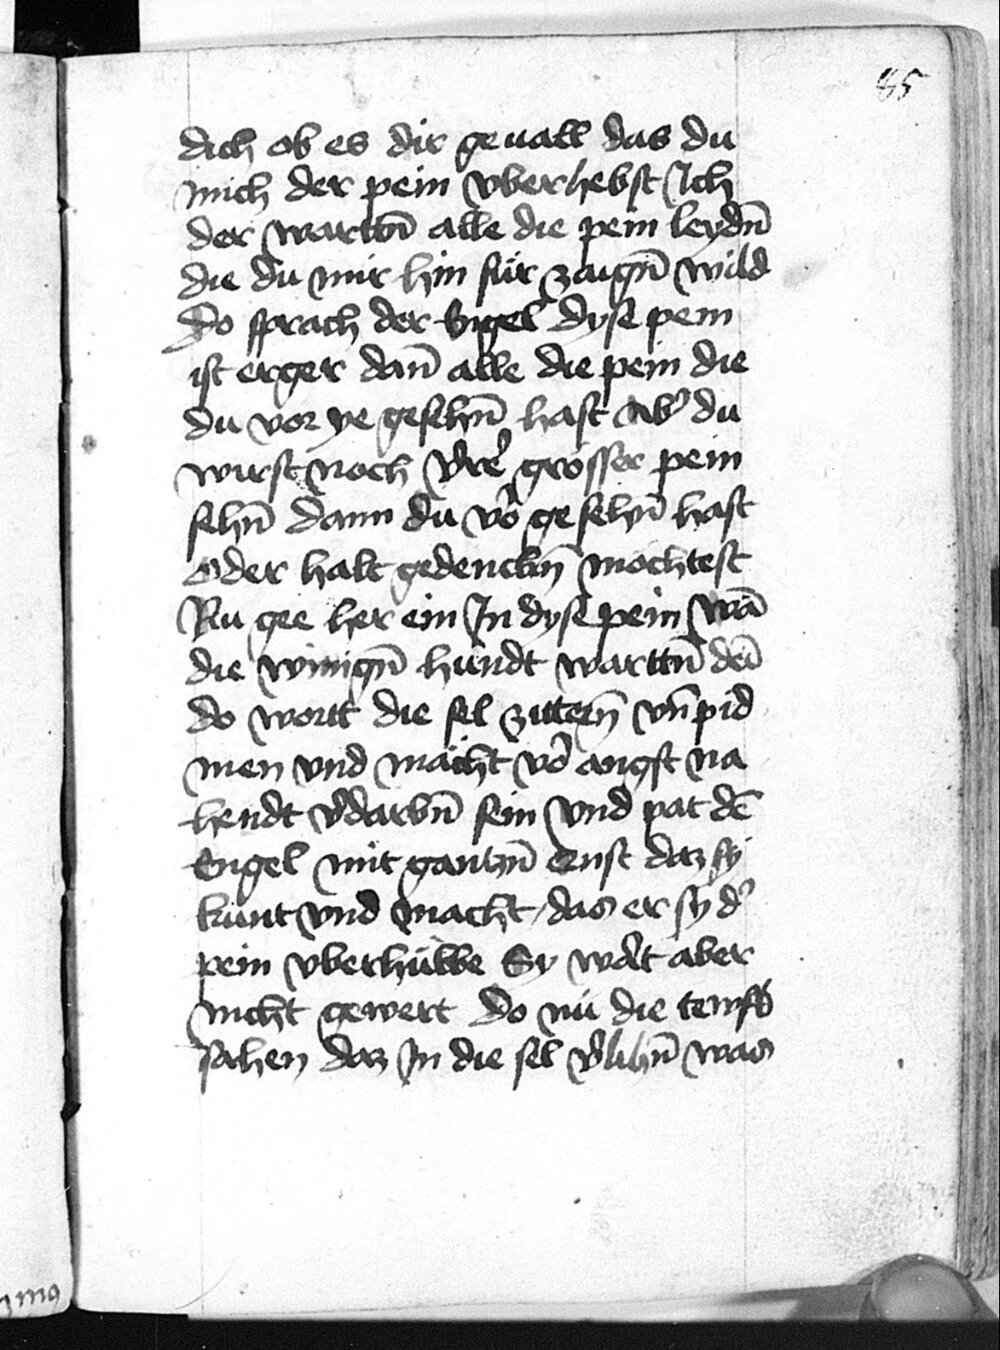 85
dich ob es dir geuall das du
mich der pein vberhebst Ich
der wartn̄ alle die pein leydn̄
die du mir hin für zaign̄ wild
Do sprach der Engel dyse pein
ist erger dan̄ alle die pein die
du vor ye gesehn̄ hast Ab͛ du
wirst noch grösser pein
sehn̄ dann du vo͛ gesehn̄ hast
Oder halt gedenckn̄ möchtest
Nu gee her ein In dyse pein wā
die winign̄ hundt warttn̄ dei̅
do wortt die sel zittern̄ vn̄ pid
men vnd mächt vo͛ angst na
hendt v͛darbn̄ sein vnd pat dē
Engel mit gantzn̄ ernst daz sy
kunt vnd macht das er sy d͛
pein vberhübbe Sy wart aber
nicht gewert Do nu die tewfl
sahen daz In die sel v͛lihn̄ was
mg